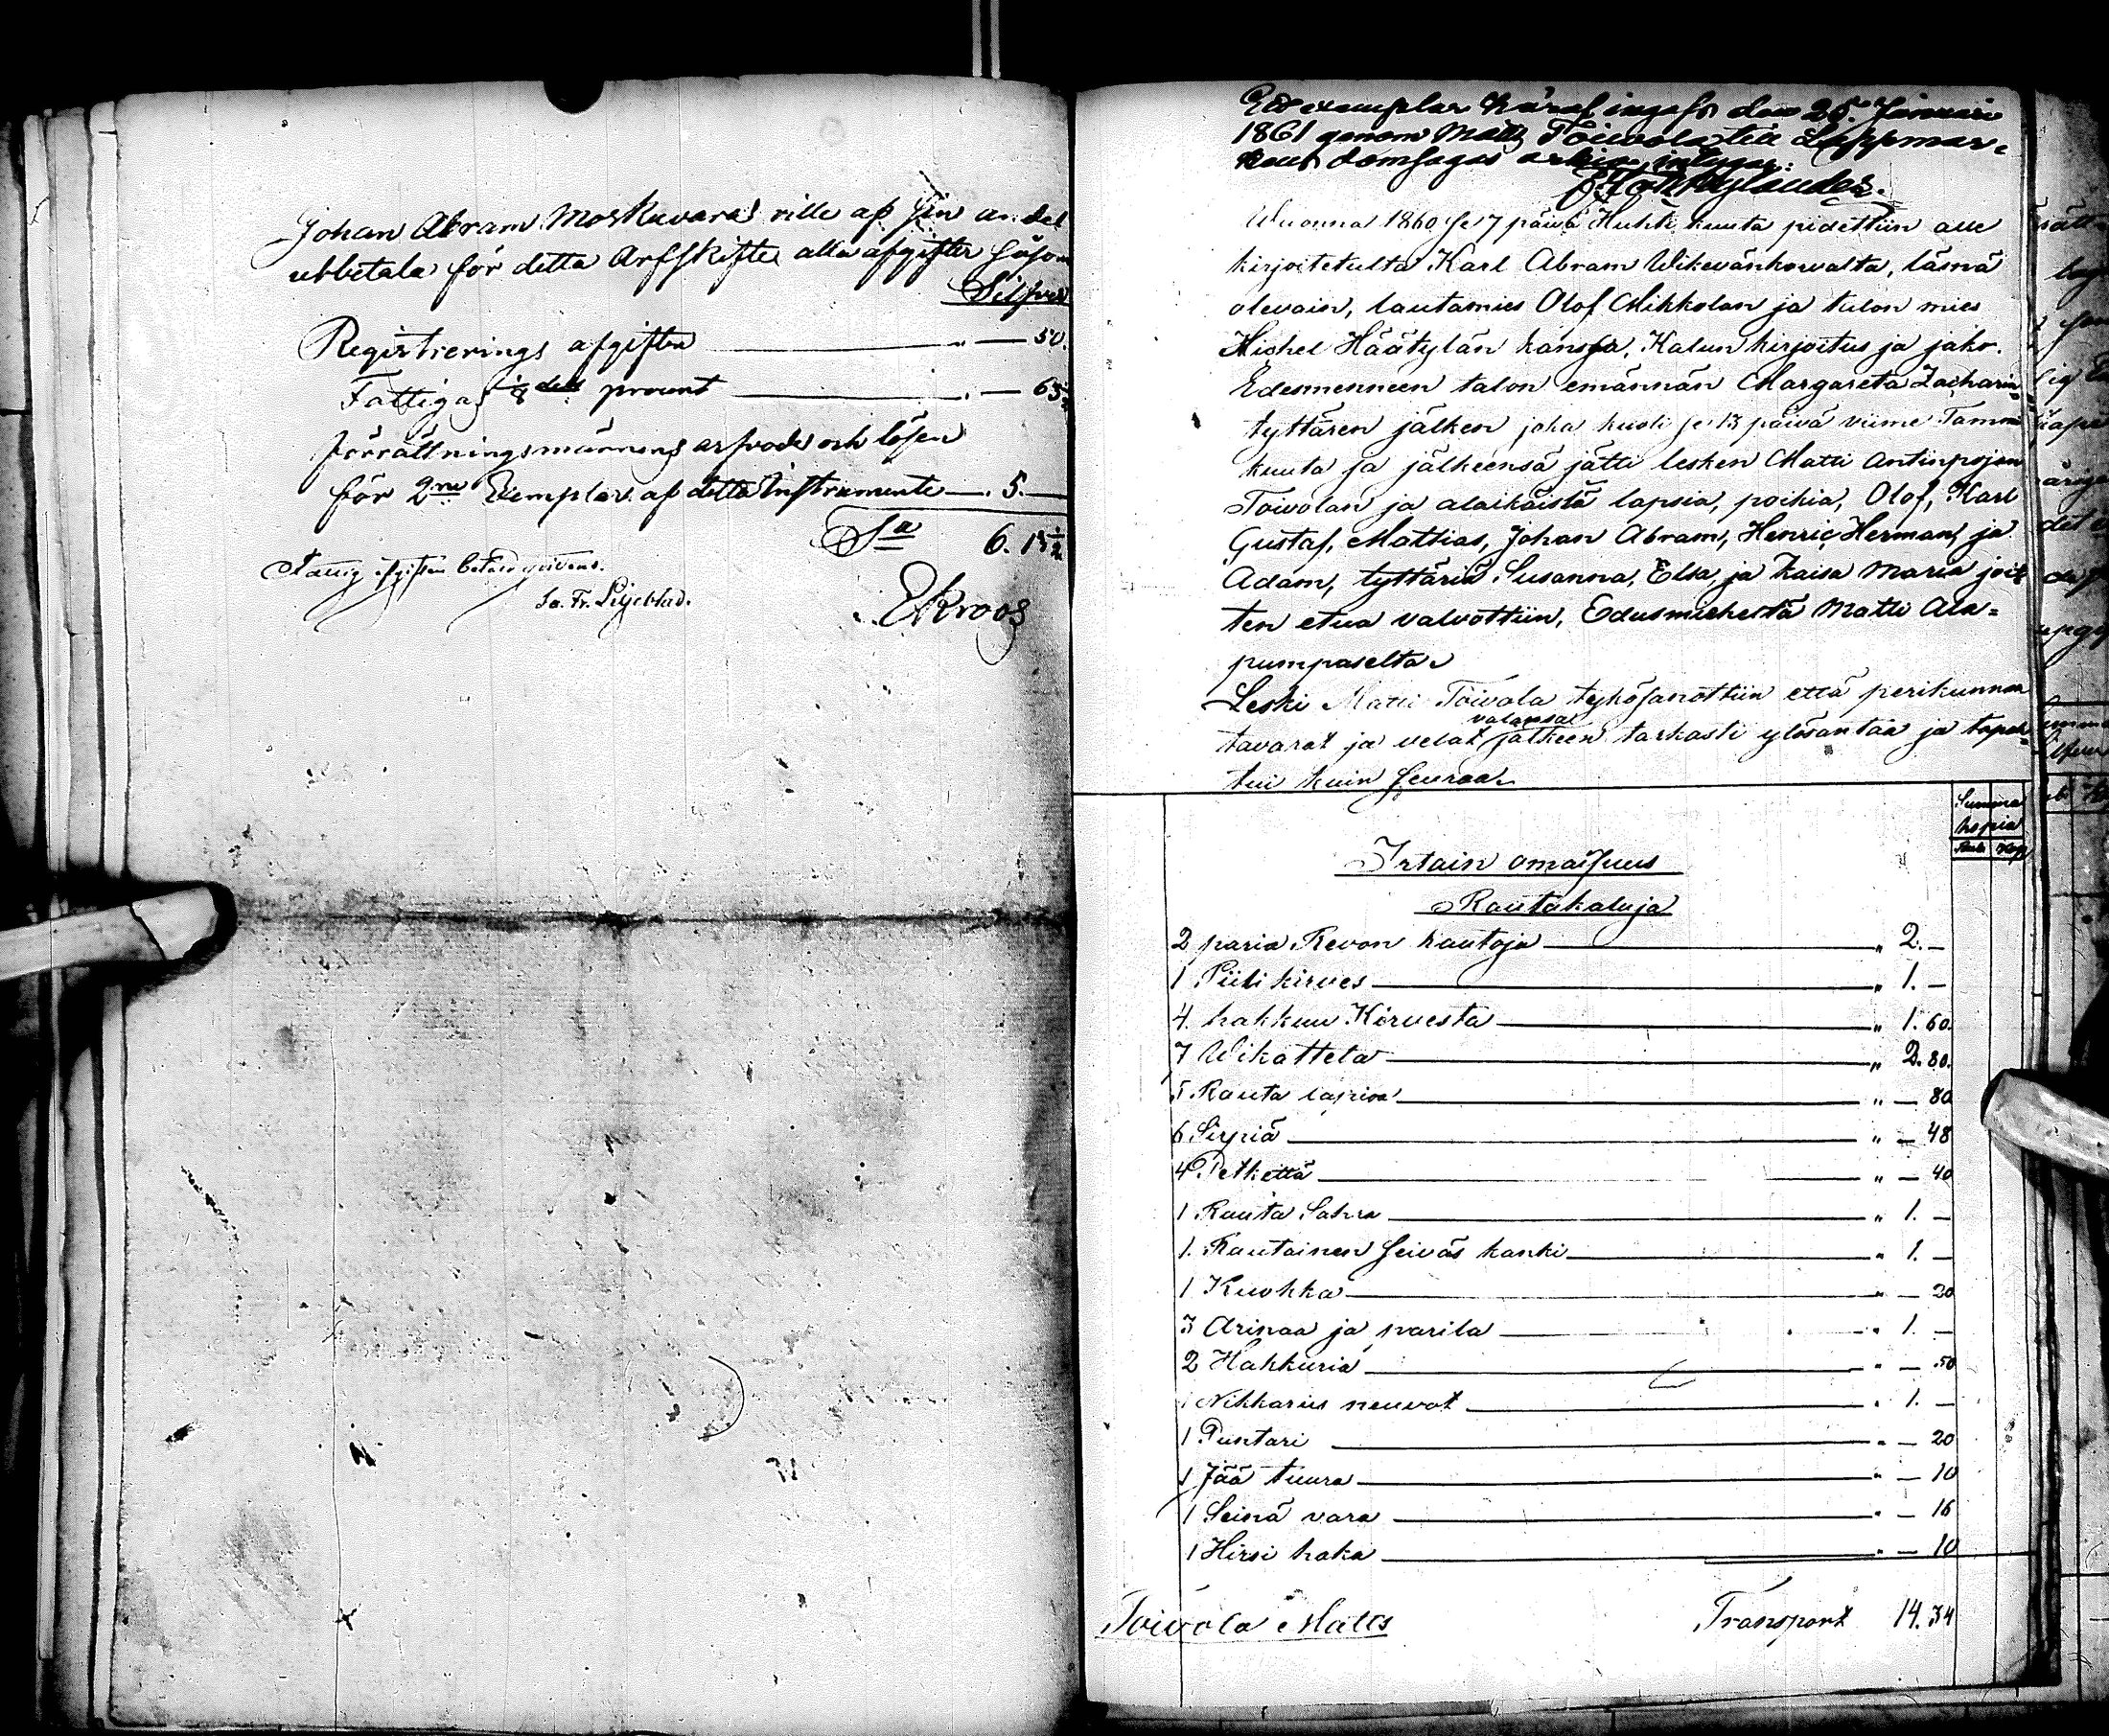 Johan Abram Moskuvaras ville af sin andel
utbetala för detta Arfskifte alla afgifter såsom
Silfver
Registrerings afgiften " — 50.
Fattigas 1/8 dels procent " — 65 1/2
förrättningsmännens arfvode och lösen
för 2ne Exemplar af detta Instrumente — " 5. —
Sa 6. 15 1/2
afgiften betald
Fr. Liljeblad.
EKroos
Ett exemplar häraf ingafs den 25. Januari
1861 genom Matts Toivola till Lappmar-
kens domsagas
Wuonna 1860 se 7 päivä Huhti kuuta pidettiin alle
kirjoitetulta Karl Abram Wikevänkowalta, läsnä
olevain, lautamies Olof Mikkolan ja talon mies
Michel Häätylän kanssa, Kalun kirjoitus ja jako.
Edesmenneen talon emännän Margareta Zacharin
tyttären jälken joka kuoli se 13 päivä viime Tammi
kuuta ja jälkeensä jätti lesken Matti Antinpojan
Toivolan ja alaikäistä lapsia, poikia, Olof, Karl
Gustaf, Mattias, Johan Abram, Henric Herman, ja
Adam, tyttäriä Susanna, Elsa, ja Kaisa Maria joit
ten etua valvottiin, Edusmieheltä Matti Ala=
pumpaselta
Leski Matti Toivola tykösanottiin että perikunnan
valansa
tavarat ja velat jälkeen tarkasti ylösantaa ja tapah=
tui kuin seuraa
Summa
kopia
Rub Kop
Irtain omaisuus
Rautakaluja
2 paria Revon rautoja " 2. —
1 Piili kirves " 1. —
4. hakkuu Kirvesta " 1. 60.
7 Wikatteta " 2. 80.
5 Rauta lapioa " — 80
6 Sirpiä " — 48
4 Petkettä " — 40
1 Rauta Sahra " 1. —
1. Rautainen seiväs kanki " 1. —
1 Kuokka " — 20
3 Arinaa ja parila " 1. —
2 Hakkuria " — 50
1 Nikkarius neuvot " 1. —
1 Puntari " — 20
1 Jää tuura " — 10
1 Seinä vara " — 16
1 Hirsi haka " — 10
Toivola Matts Transport 14. 34